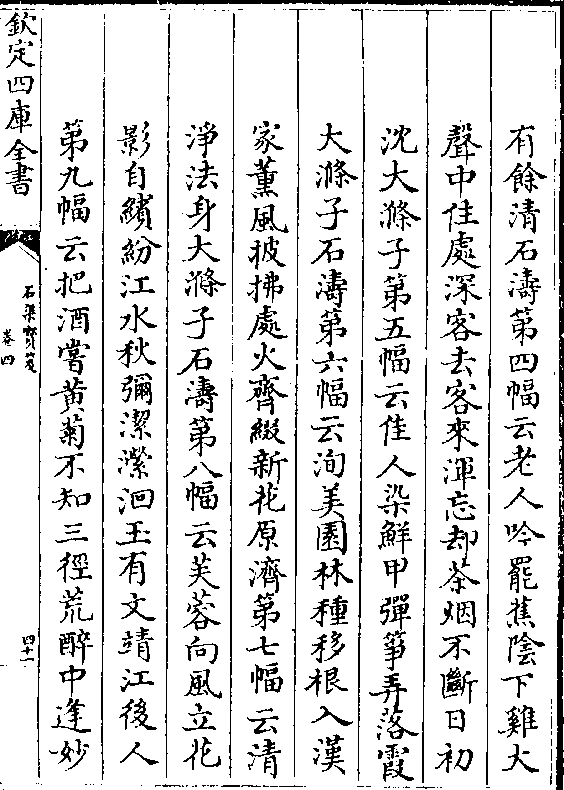 有餘清石濤第四幅云老人吟罷蕉陰下雞犬
聲中住處深客去客來渾忘却茶烟不斷日初
沈大滌子第五幅云佳人染鮮甲彈箏弄落霞
大滌子石濤第六幅云洵美園林種移根入漢
家薰風披拂處火齊綴新花原濟第七幅云清
淨法身大滌子石濤第八幅云芙蓉向風立花
影自繽紛江水秋彌潔瀠洄玉有文靖江後人
第九幅云把酒嘗黃菊不知三徑荒醉中逢妙
欽定四庫全書
石渠寶笈
卷四
四十一